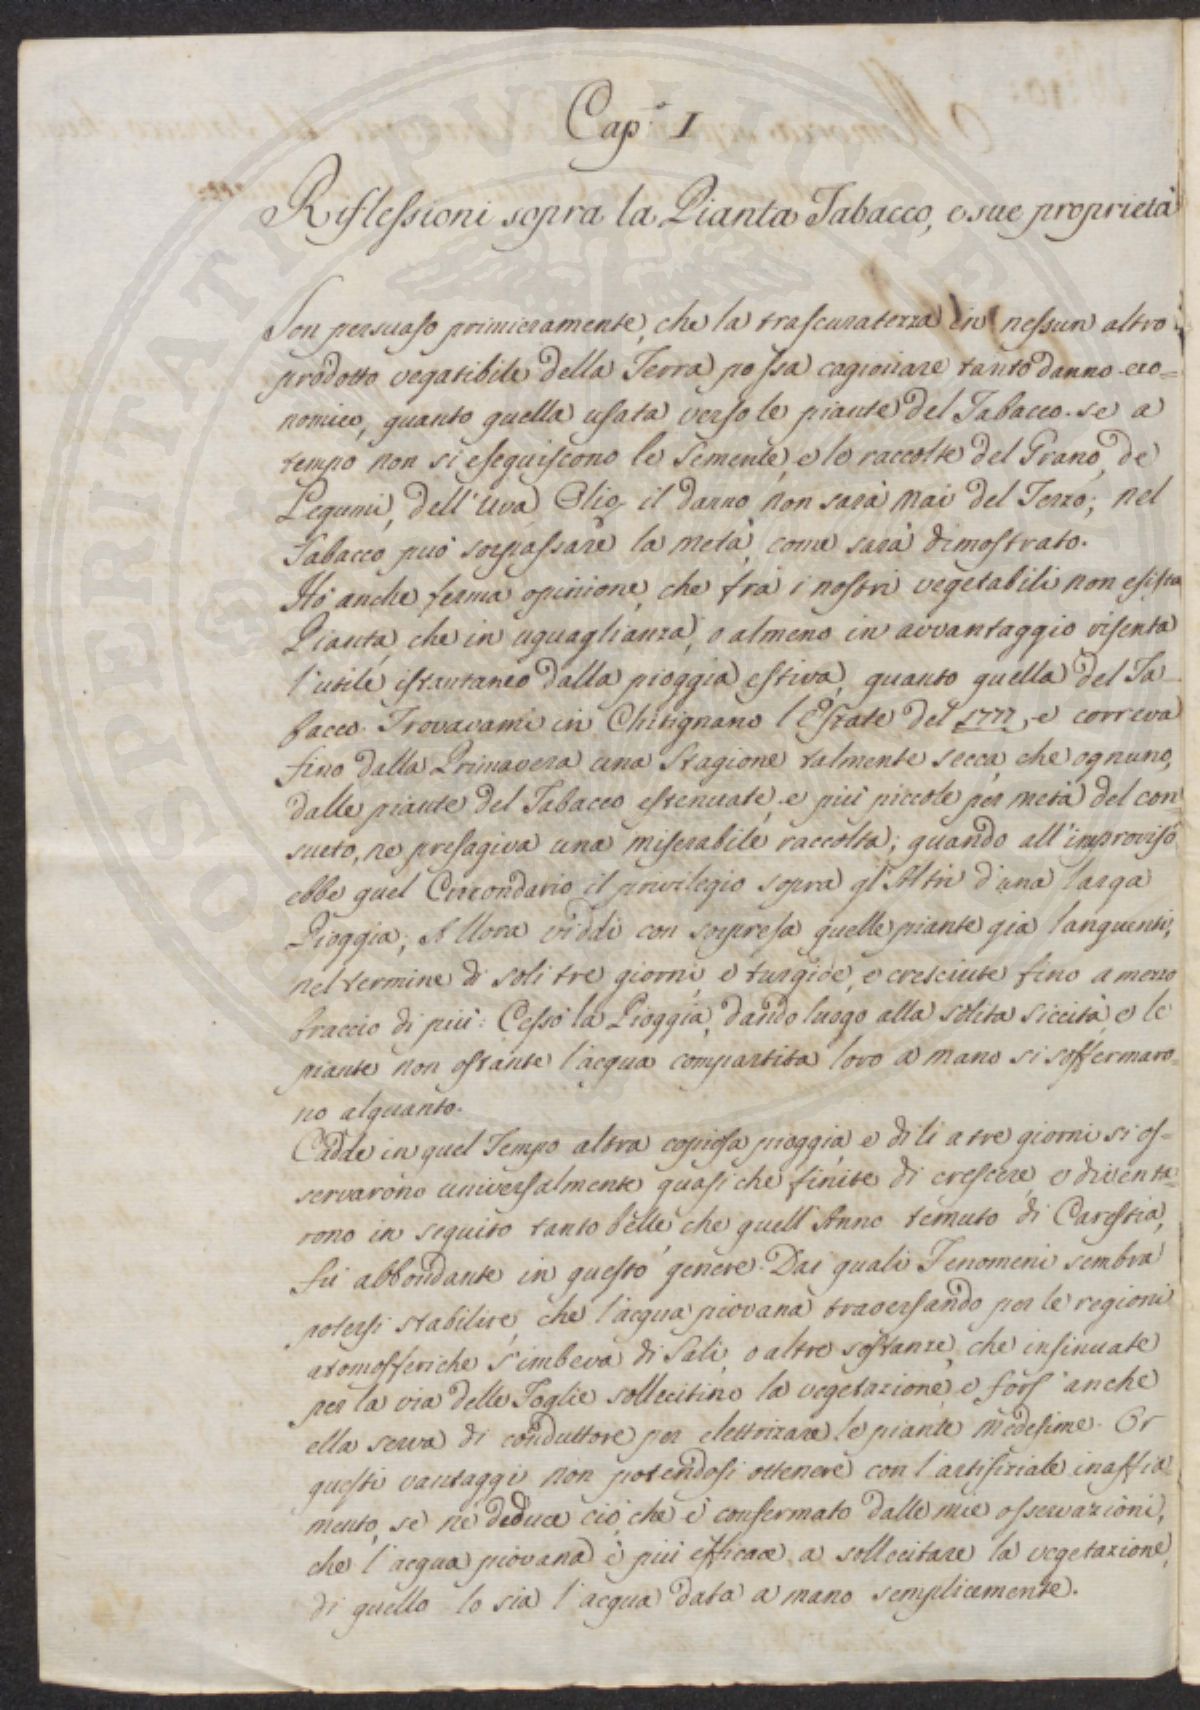 Cap.º I
Riflessioni sopra la Pianta Tabacco, e sue proprietà
Son persuaso primieramente, che la trascuratezza in nessun altro
prodotto vegatibile della Terra possa cagionare tanto danno eco=
nomico, quanto quella usata verso le piante del Tabacco. se a
tempo non si eseguiscono le Semente, e le raccolte del Grano, de
Legumi, dell'Uva Olio, il danno non sarà mai del Terzo; nel
Tabacco può sorpassare la metà, come sarà dimostrato.
Hò anche ferma opinione, che frà i nostri vegetabili non esista
Pianta, che in uguaglianza, o almeno in avvantaggio risenta
l'utile istantaneo dalla pioggia estiva, quanto quella del Ta-
bacco. Trovavami in Chitignano l'Estate del 1777, e correva
fino dalla Primavera una Stagione talmente secca, che ognuno,
dalle piante del Tabacco estenuate, e più piccole per metà del con
sueto, ne presagiva una miserabile raccolta; quando all'improviso
ebbe quel Circondario il privilegio sopra gl'Altri d'una larga
Pioggia; Allora viddi con sorpresa quelle piante già languenti,
nel termine di soli tre giorni, e turgide, e cresciute fino a mezzo
braccio di più: Cessò la Pioggia, dando luogo alla solita siccità, e le
piante non ostante l'acqua compartita loro a mano si soffermaro-
no alquanto.
Cadde in quel Tempo altra copiosa pioggia, e di lì a tre giorni si os=
servarono universalmente quasi che finite di crescere, e diventa=
rono in seguito tanto belle che quell'Anno temuto di Carestia,
fù abbondante in questo genere. Dai quali Fenomeni sembra
potersi stabilire, che l'acqua piovana, traversando per le regioni
atomosferiche s'imbeva di Sali, o altre sostanze, che insinuate
per la via delle Foglie sollecitino la vegetazione, e fors'anche
ella serva di conduttore per elettrizare le piante medesime. Or
questi vantaggi non potendosi ottenere con l'artifiziale inaffia=
mento, se ne deduce ciò, che è confermato dalle mie osservazioni,
che l'acqua piovana è più efficace a sollecitare la vegetazione,
di quello lo sia l'acqua data a mano semplicemente.